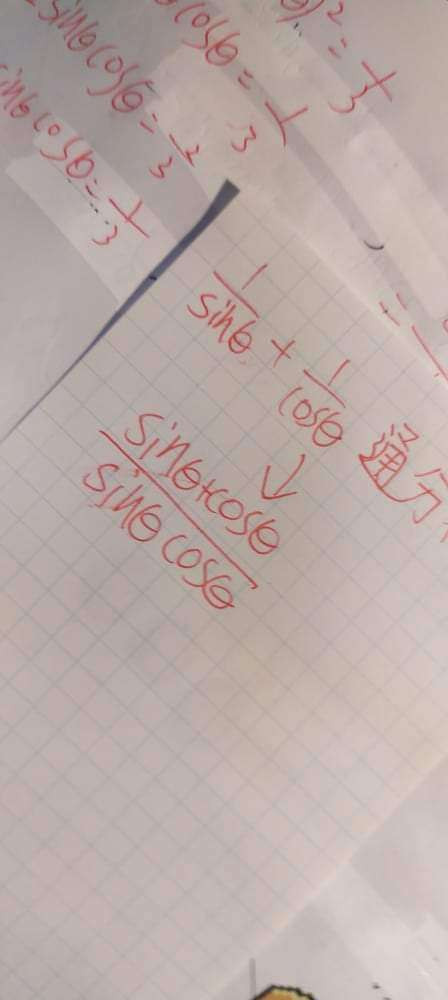 θ)² = 1/3
cosθ = 1/3
sinθcosθ = 2/3
sinθcosθ = 1/3
1/sinθ + 1/cosθ 通分
↓
sinθ+cosθ/sinθcosθ